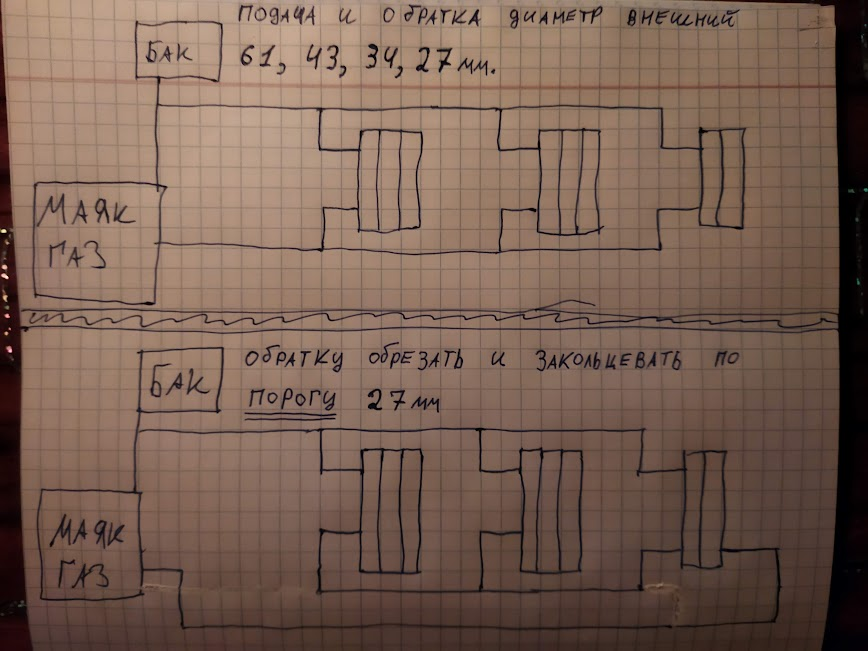 ПОДАЧА И ОБРАТКА ДИАМЕТР ВНЕШНИЙ
БАК
61, 43, 34, 27мм.
МАЯК
ГАЗ
ОБРАТКУ ОБРЕЗАТЬ И ЗАКОЛЬЦЕВАТЬ ПО
БАК
ПОРОГУ 27мм
МАЯК
ГАЗ